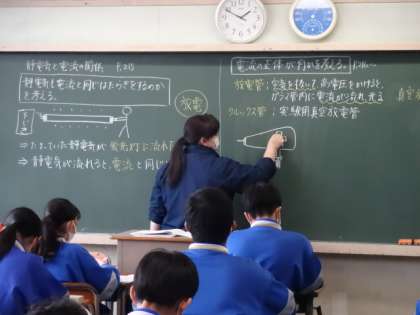 静電気と電流の関係 P.213
静電気も電流と同じはたらきをするのか
を考える。
⇒ たまっていた静電気が蛍光灯に流れ
⇒ 静電気が流れると、電流と同じ
放電
電流の正体が何かを考える。
放電管：空気を抜いて高電圧をかけると、
ガラス管内に電流が流れ光る
クルックス管：実験用真空放電管
真空